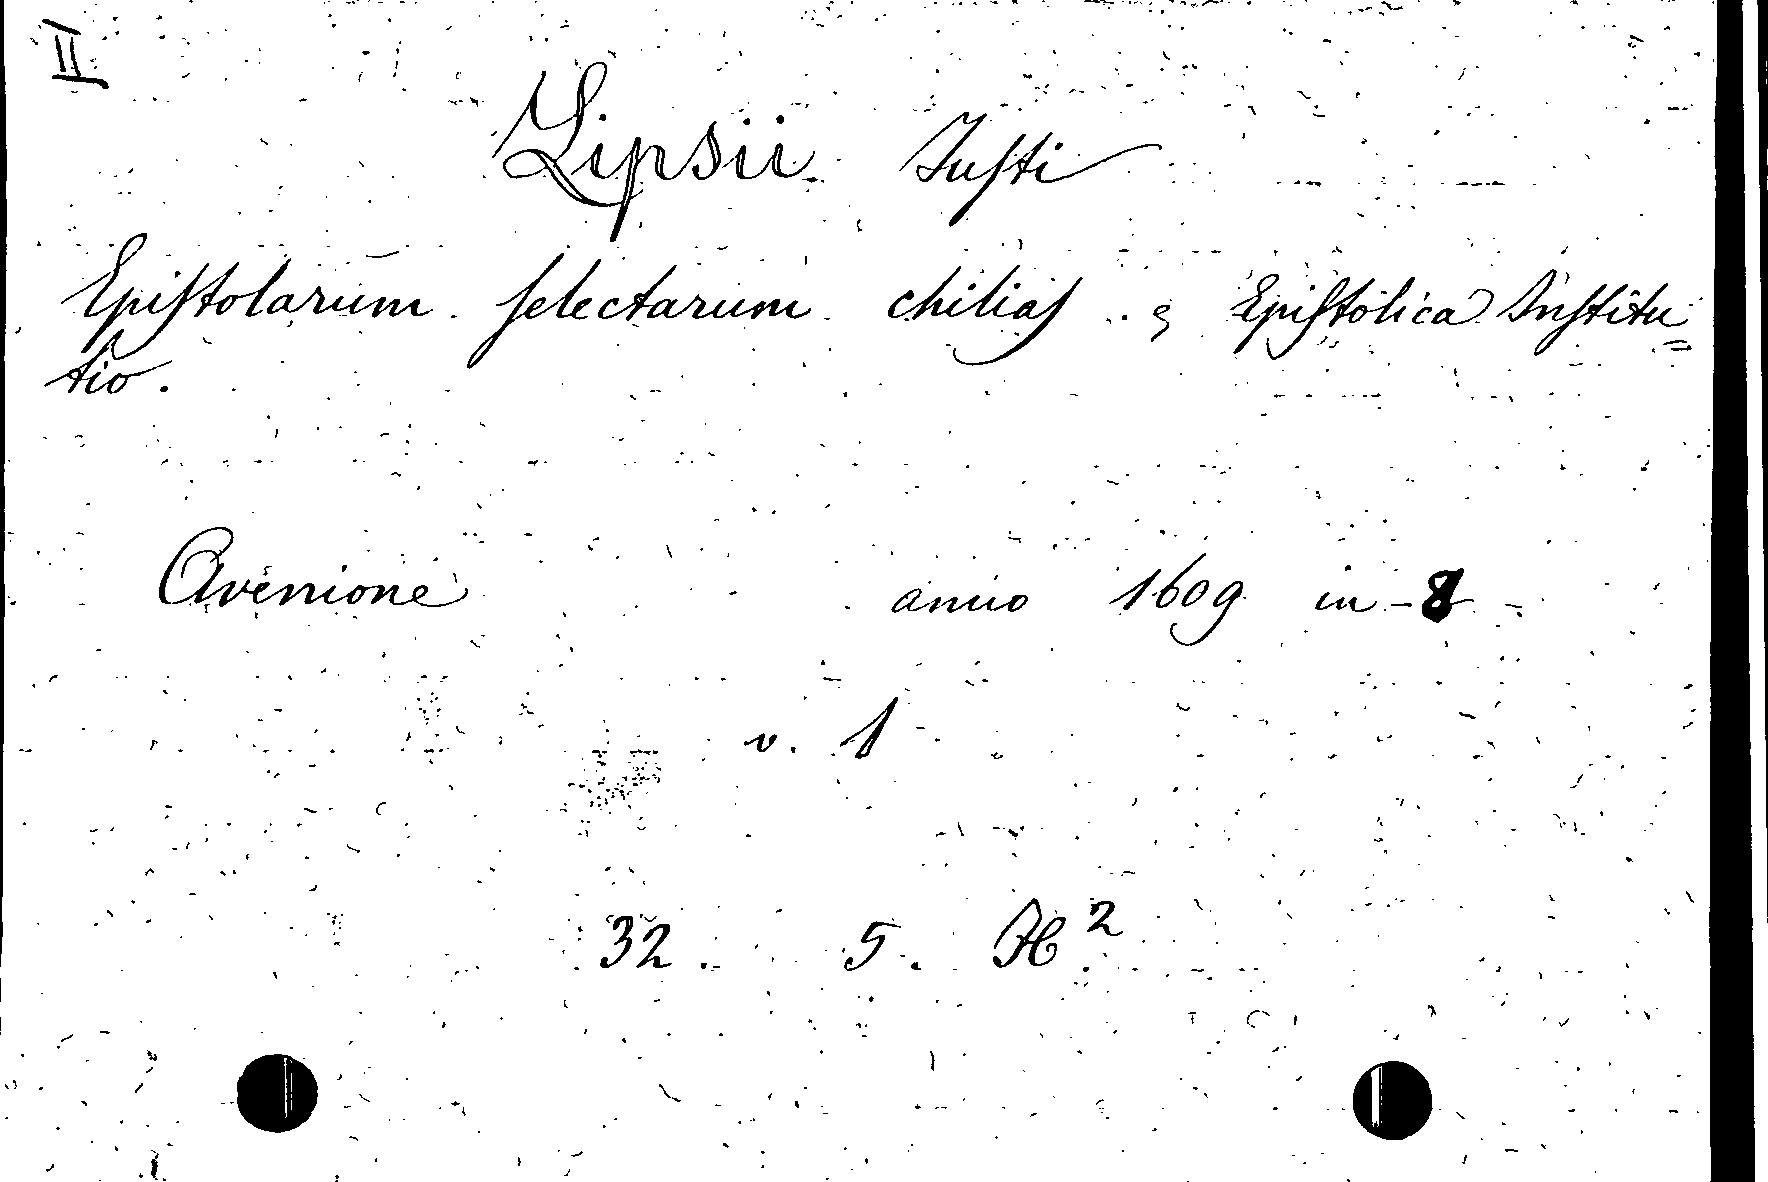 II
Lipsii Juſti
Epiſtolarum ſelectarum chilias . & Epiſtolica Inſtitu=
tio.
Avenione anno 1609 in-8
v. 1
32. 5. H²